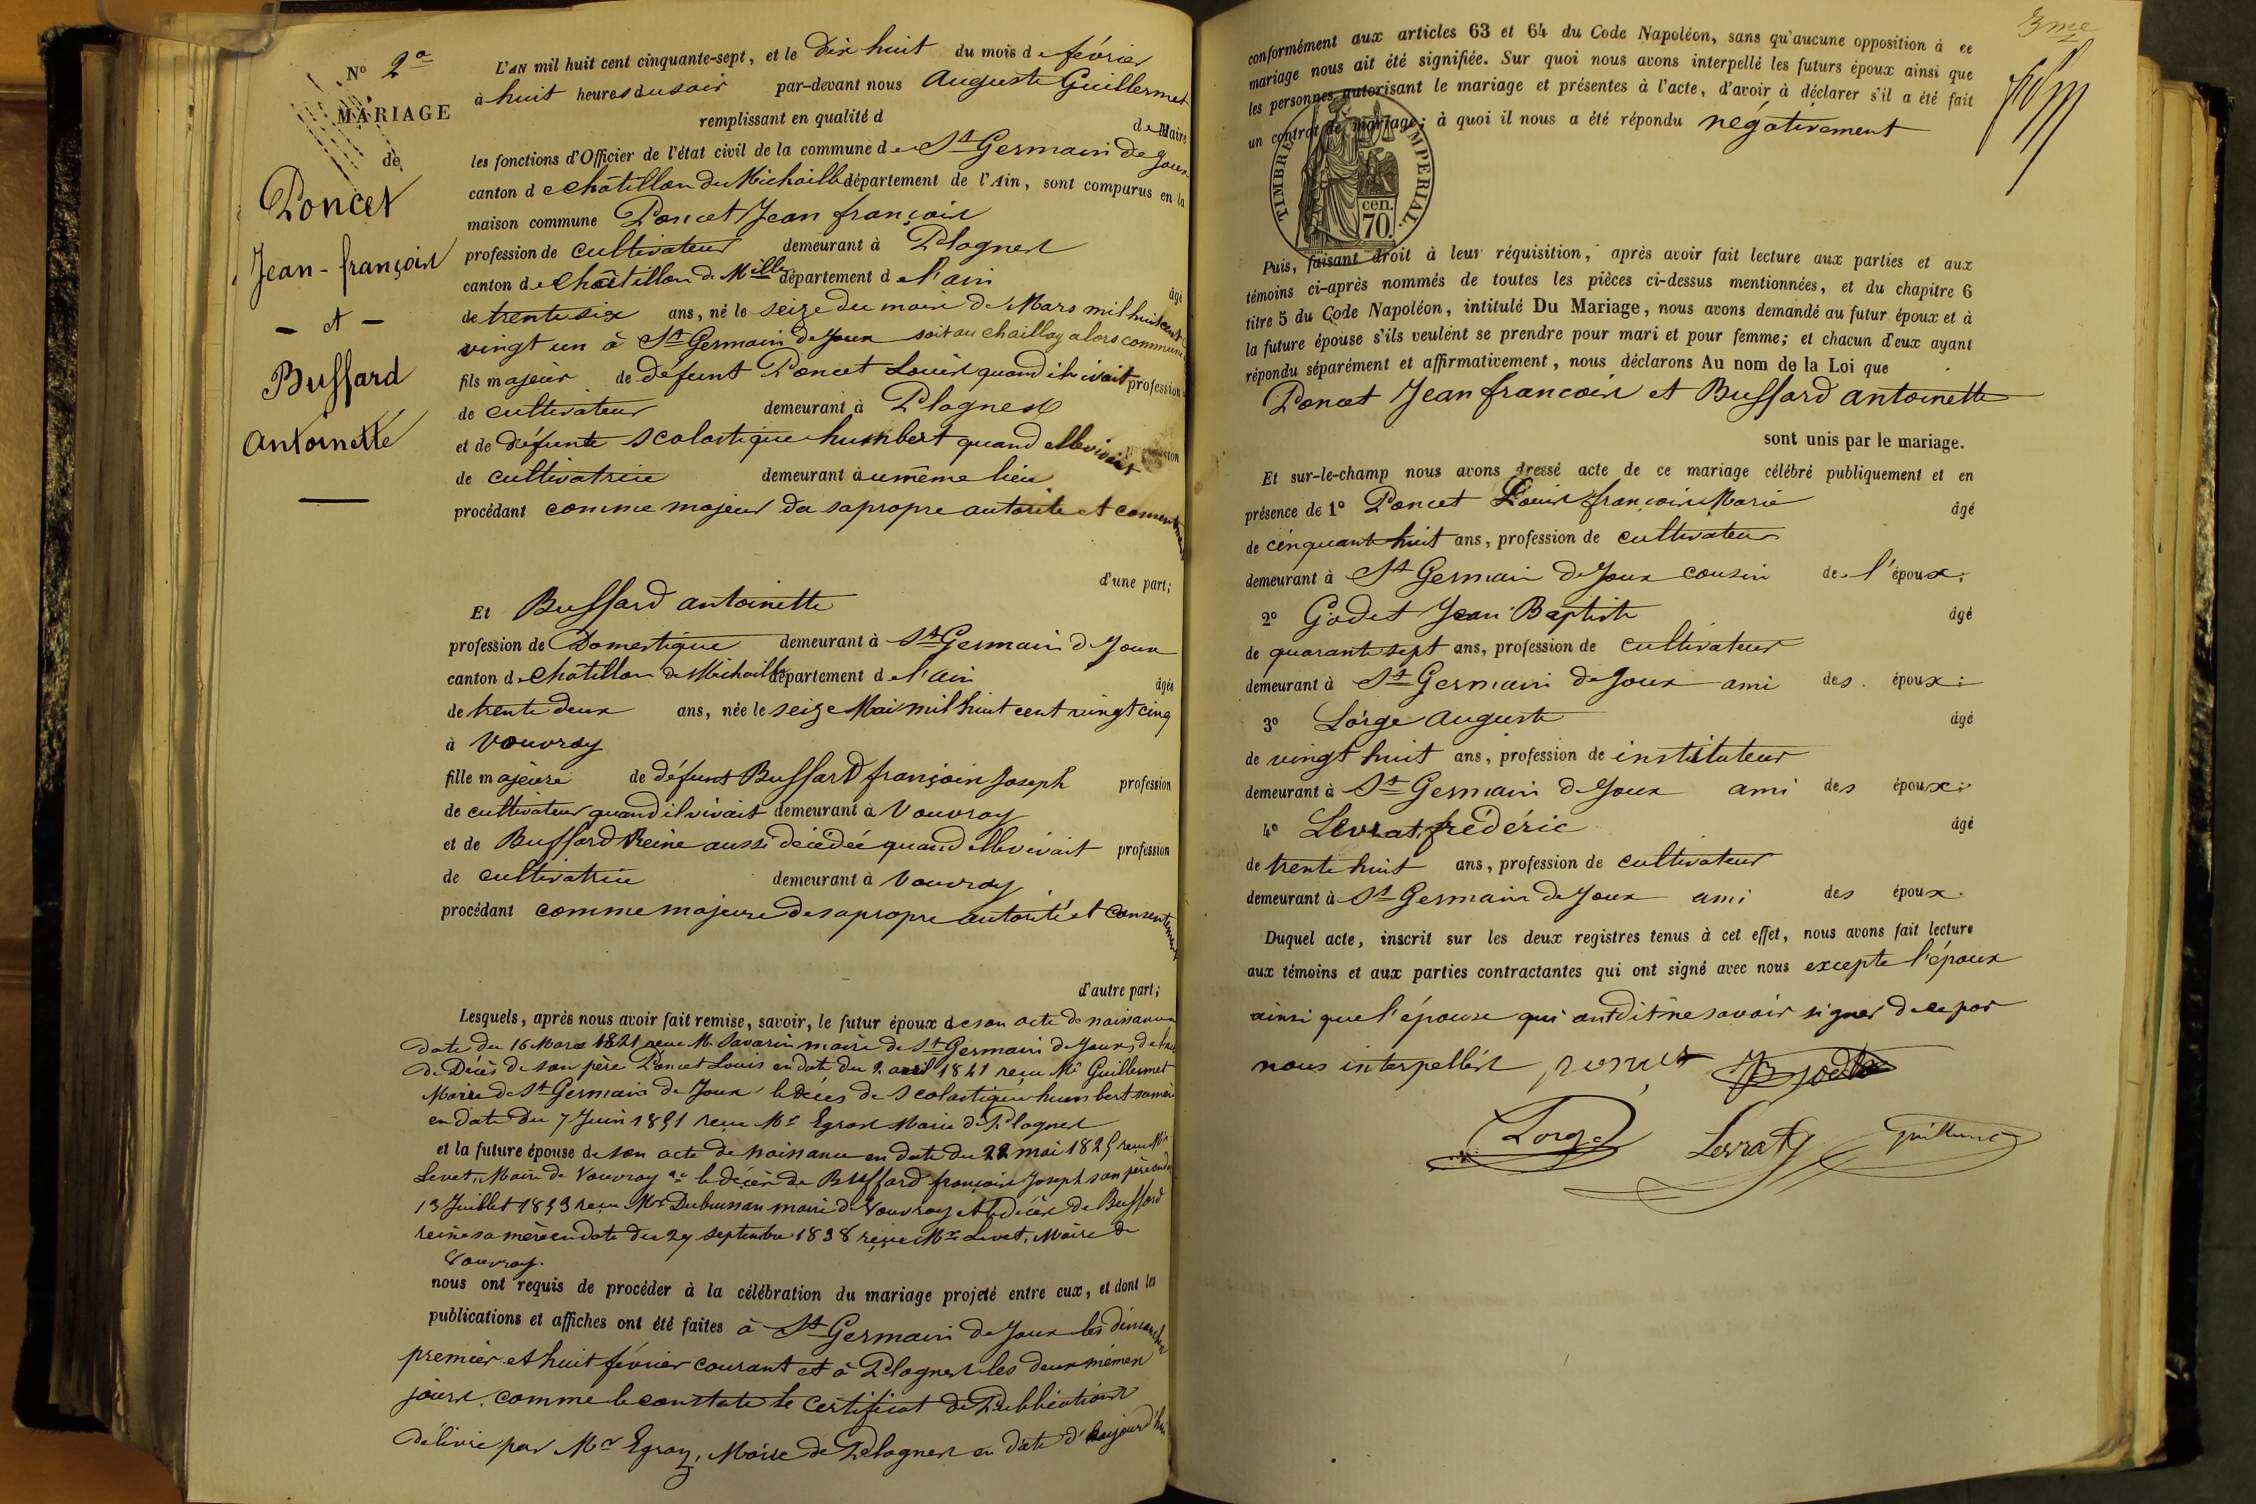 N° 2
MARIAGE
de
Poncet
Jean-françois
- et -
Buffard
Antoinette
L'AN mil huit cent cinquante-sept, et le Dix huit du mois de février
à huit heures du soir par-devant nous Auguste Guillermet
remplissant en qualité d de Maire
les fonctions d'Officier de l'état civil de la commune de St Germain de Joux
canton de Châtillon de Michaille département de l'Ain, sont comparus en la
maison commune Poncet Jean françois
profession de cultivateur demeurant à Plagnes
canton de Châtillon de Mlle département de l'ain
âgé
de trente six ans, né le seize du mois de Mars mil huit cent
vingt un à St Germain de Joux soit au Chailloy alors commune
fils majeur de défunt Poncet Louis quand il vivait profession
de cultivateur demeurant à Plagnes
et de défunte Scolastique humbert quand elle vivait profession
de cultivatrice demeurant au même lieu
procédant comme majeur de sa propre autorité et consentement
d'une part;
Et Buffard antoinette
profession de Domestique demeurant à St Germain de Joux
canton de Châtillon de Michaille département de l'ain
âgée
de trente deux ans, née le seize Mai mil huit cent vingt cinq
à Vouvray
fille majeure de défunt Buffard françois Joseph profession
de cultivateur quand il vivait demeurant à Vouvray
et de Buffard Reine aussi décédée quand elle vivait profession
de cultivatrice demeurant à Vouvray
procédant comme majeure de sa propre autorité et consentement
d'autre part;
Lesquels, après nous avoir fait remise, savoir, le futur époux de son acte de naissance
date du 16 Mars 1821 reçu Mr Savarin maire de St Germain de Joux, de l'acte
de Décès de son père Poncet Louis en date du 2 avril 1841 reçu Mr Guillermet
Maire de St Germain de Joux le décès de Scolastique humbert sa mère
en date du 7 Juin 1851 reçu Mr Egraz Maire de Plagnes
et la future épouse de son acte de naissance en date du 22 mai 1825 reçu Mr
Levet, Maire de Vouvray le décès de Buffard françois Joseph son père en date
13 Juillet 1853 reçu Mr Dubuisson maire de Vouvray et le décès de Buffard
reine sa mère en date du 29 septembre 1838 reçu Mr Levet, Maire de
Vouvray.
nous ont requis de procéder à la célébration du mariage projeté entre eux, et dont les
publications et affiches ont été faites à St Germain de Joux les dimanches
premier et huit février courant et à Plagnes les deux mêmes
jours. comme le constate le certificat de Publications
délivré par Mr Egraz, Maire de Plagnes en date d'aujourd'hui
3me
conformément aux articles 63 et 64 du Code Napoléon, sans qu'aucune opposition à ce
mariage nous ait été signifiée. Sur quoi nous avons interpellé les futurs époux ainsi que
les personnes autorisant le mariage et présentes à l'acte, d'avoir à déclarer s'il a été fait
un contrat de mariage; à quoi il nous a été répondu négativement
TIMBRE IMPERIAL.
cen.
70.
Puis, faisant droit à leur réquisition, après avoir fait lecture aux parties et aux
témoins ci-après nommés de toutes les pièces ci-dessus mentionnées, et du chapitre 6
titre 5 du Code Napoléon, intitulé Du Mariage, nous avons demandé au futur époux et à
la future épouse s'ils veulent se prendre pour mari et pour femme; et chacun d'eux ayant
répondu séparément et affirmativement, nous déclarons Au nom de la Loi que
Poncet Jean francois et Buffard antoinette
sont unis par le mariage.
Et sur-le-champ nous avons dressé acte de ce mariage célébré publiquement et en
présence de 1° Poncet Louis françois Marie âgé
de cinquante huit ans, profession de cultivateur
demeurant à St Germain de Joux cousin de l'époux;
2° Godet Jean Baptiste âgé
de quarante sept ans, profession de cultivateur
demeurant à St Germain de Joux ami des époux;
3° Lorge Auguste âgé
de vingt huit ans, profession de instituteur
demeurant à St Germain de Joux ami des époux;
4° Levrat frédéric âgé
de trente huit ans, profession de cultivateur
demeurant à St Germain de Joux ami des époux.
Duquel acte, inscrit sur les deux registres tenus à cet effet, nous avons fait lecture
aux témoins et aux parties contractantes qui ont signé avec nous excepté l'époux
ainsi que l'épouse qui ont dit ne savoir signer de ce par
nous interpellés poncet JB godet
Lorge Levrat f Guillermet